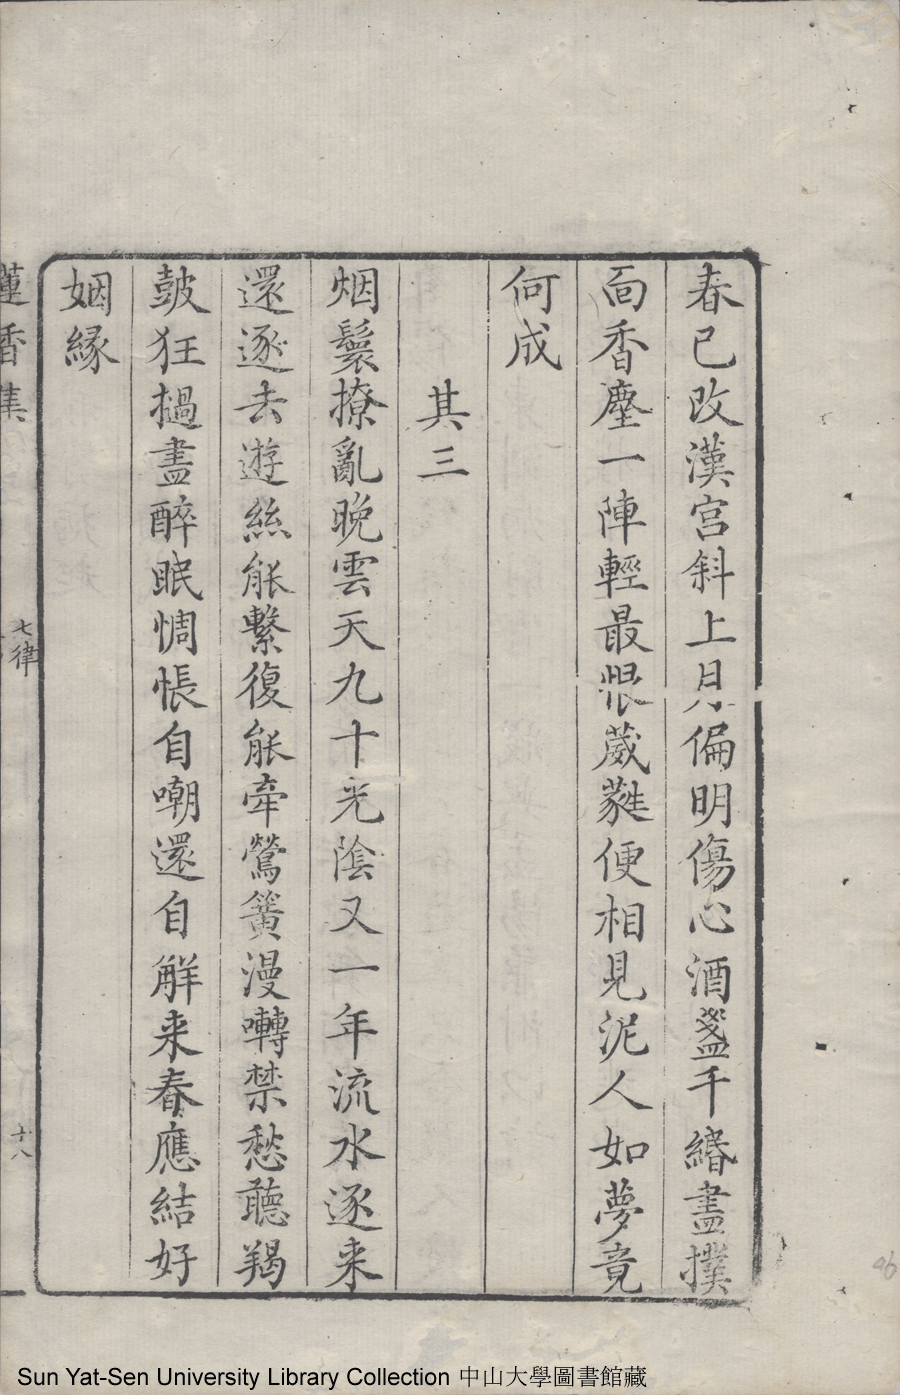 春已改漢宮斜上月偏明傷心酒盞千緡盡撲
面香塵一陣輕最恨葳蕤便相見泥人如夢竟
何成
其三
烟鬟撩亂晚雲天九十光陰又一年流水逐来
還逐去遊絲能繫復能牽鶯簧漫囀禁愁聽羯
鼓狂撾盡醉眠惆悵自嘲還自解来春應結好
姻緣
蓮香集
七律
十八
Sun Yat-Sen University Library Collection 中山大學圖書館藏